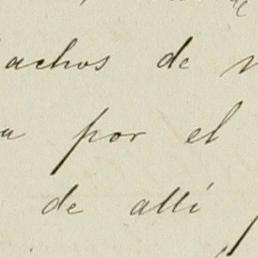 de
achos de
a por el
de allí